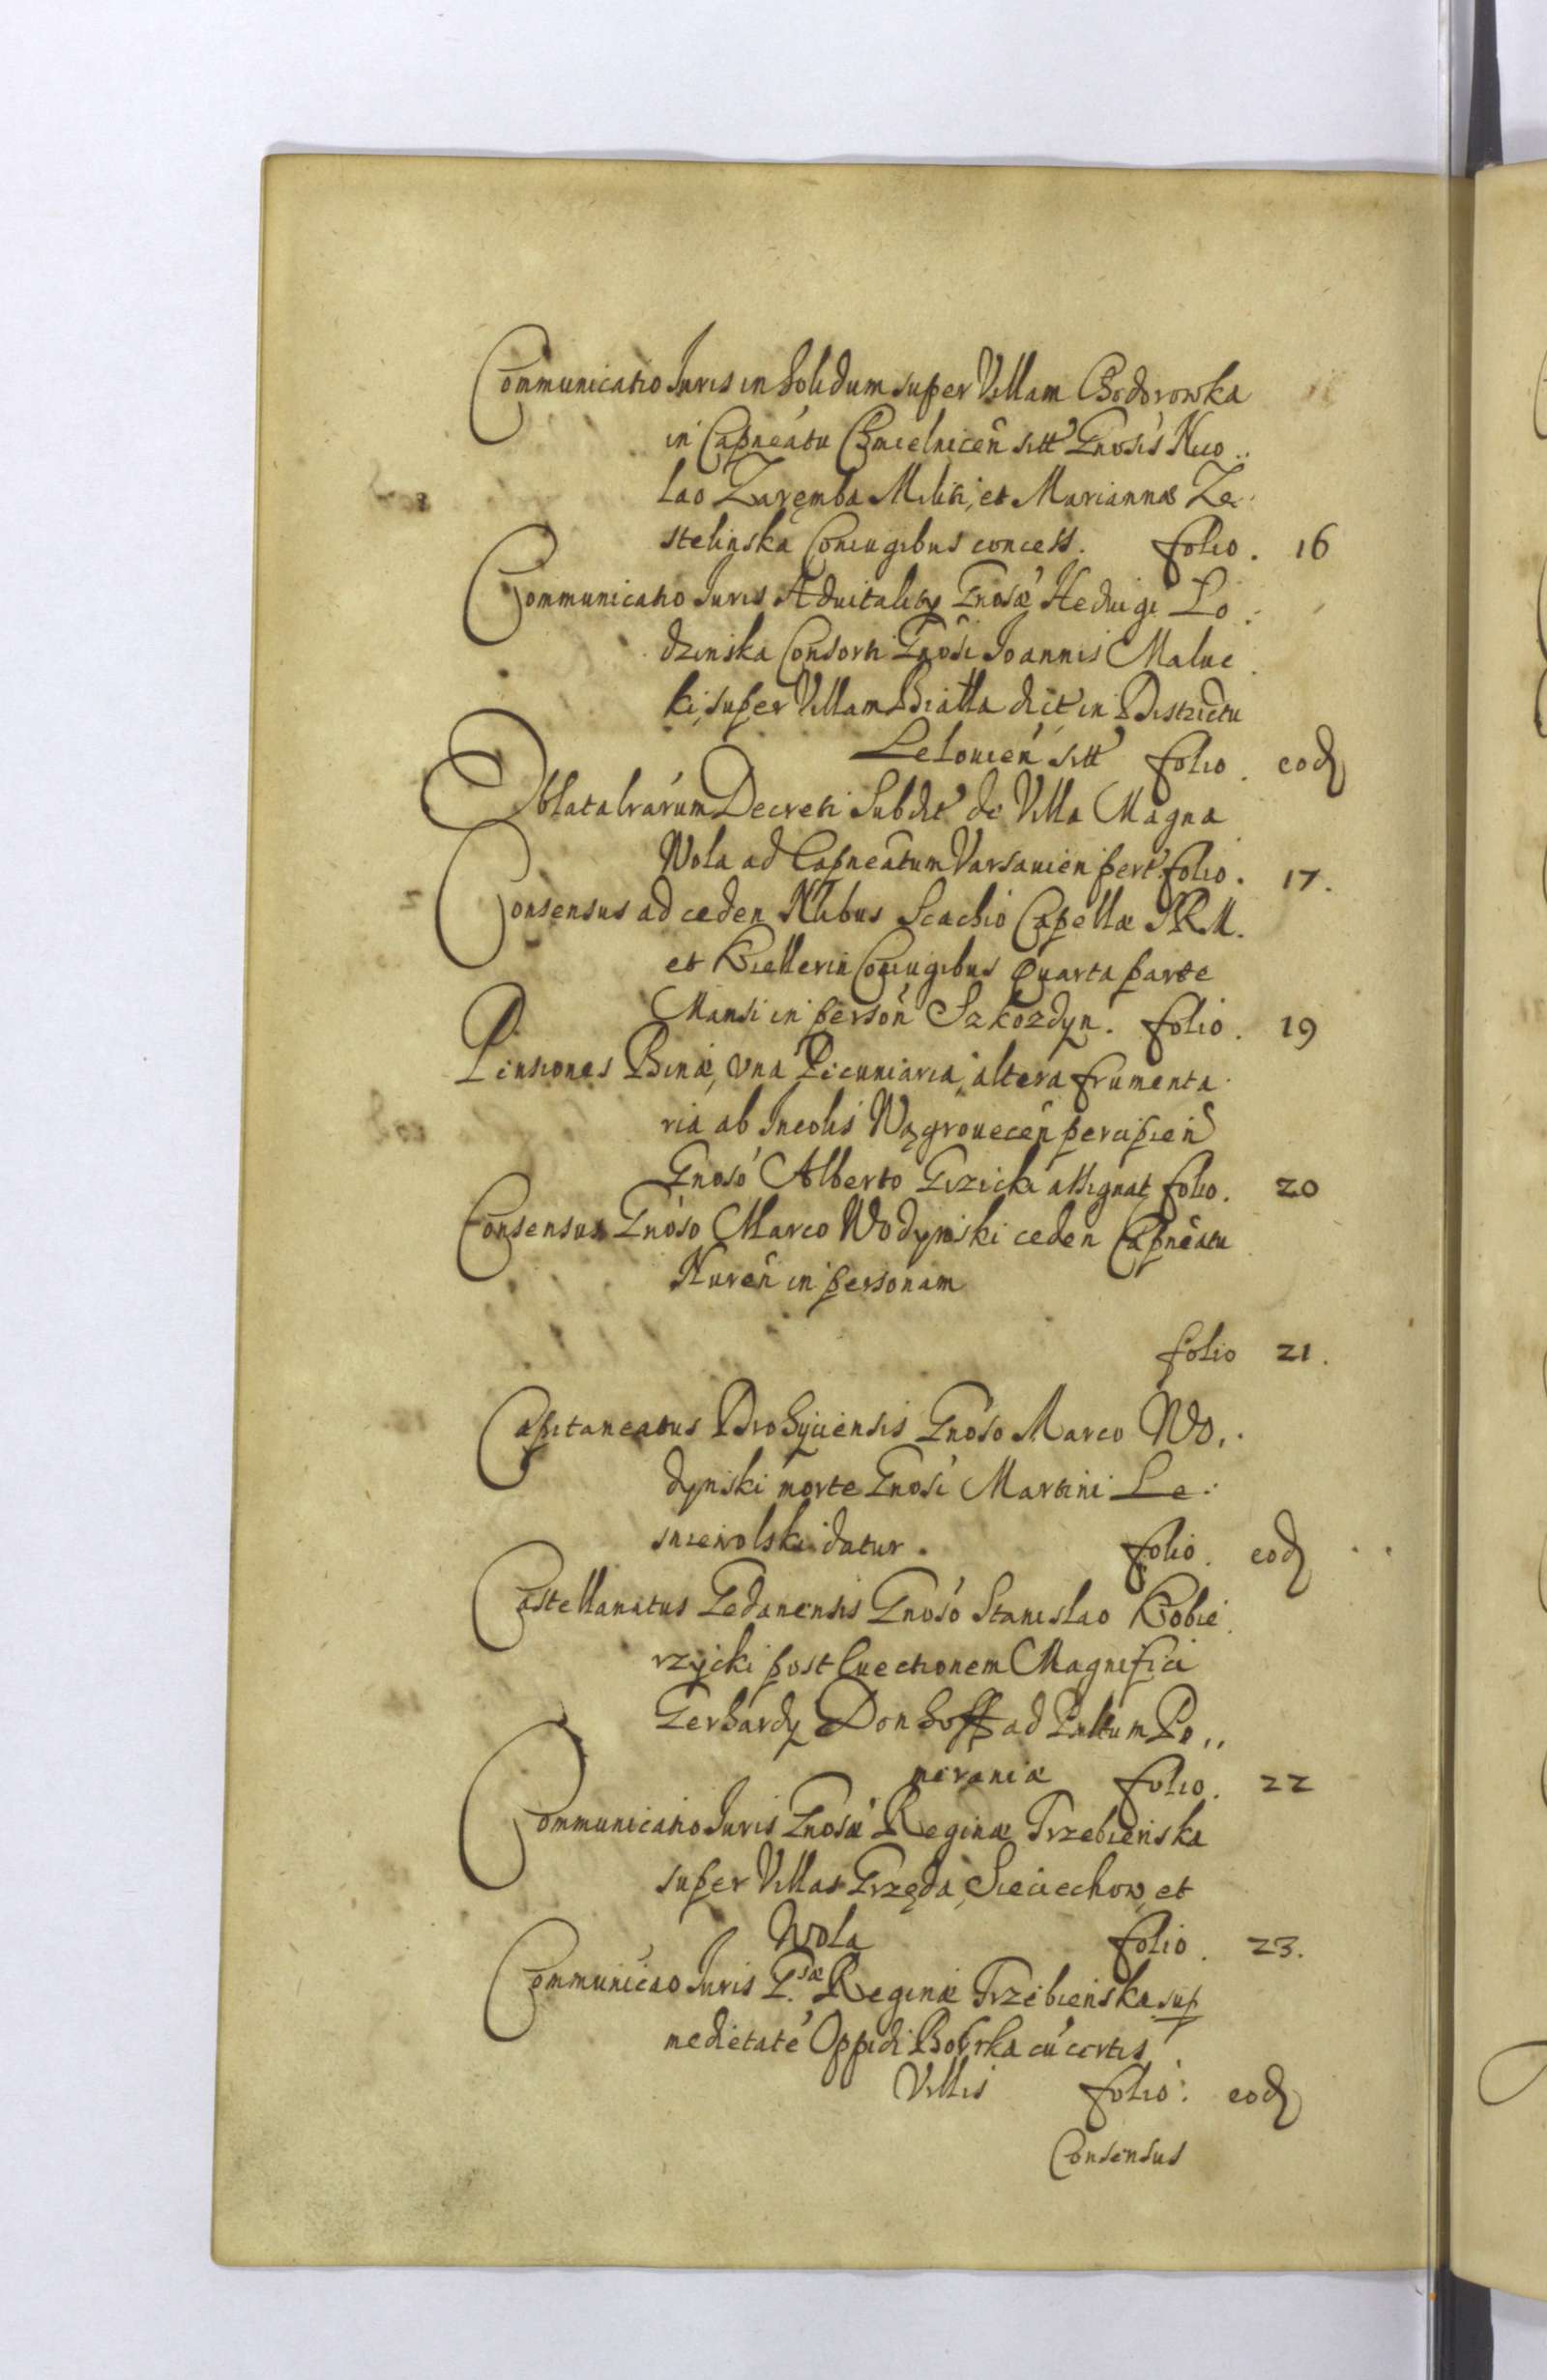 Communicatio Juris in solidum super Villam Chodorowka
in Capneátu Chmielnicen̄ sitt Gnosis Nico..
lao Zaręmba Militi, et Mariannæ Ze..
stelinska Coniugibus concess. folio. 16
Communicatio Juris Aduitalitij Gnosæ Heduigi Lo:
dzinska Consorti Gnosi Joannis Maluc
ki, super Villam Bialla dict in Districtu
Lelouien̄ sitt folio. eod
Oblata lrarum Decreti Subdit de Villa Magna
Wola ad Capneatum Varsauien pert folio. 17.
Consensus ad ceden Nlibus Scachio Capellæ S R M.
et Coniugibus Quarta parte
Mansi in person̄ Szkozdyn. folio. 19
Pensiones Binæ, vna Pecuniaria, altera frumenta
ria ab Incolis Wągrouecen̄ percipien̄
Gnoso Alberto Gizicki assignat folio. 20
Consensus Gnoso Marco Wodynski ceden Capneatu
Nuren̄ in personam
folio 21.
Capitaneatus Drohyciensis Gnoso Marco Wo..
dynski morte Gnosi Martini Le:
sniewolski datur. folio. eod
Castellanatus Gedanensis Gnoso Stanislao Kobie
rzycki post Euectionem Magnifici
Gerhardy Donhoff ad Palltum Po..
meraniæ folio. 22
Communicatio Juris Gnosæ Reginæ Trzebienska
super Villas Grzęda, Sieciechow, et
Wola folio. 23.
Communicao Juris G.sæ Reginæ Trzebienska sup
medietate Oppidi Bobrka cu certis
Villis folio. eod
Consensus